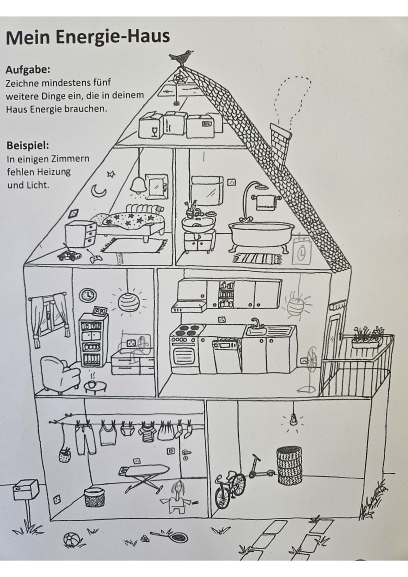 Mein Energie-Haus
Aufgabe:
Zeichne mindestens fünf
weitere Dinge ein, die in deinem
Haus Energie brauchen.
Beispiel:
In einigen Zimmern
fehlen Heizung
und Licht.